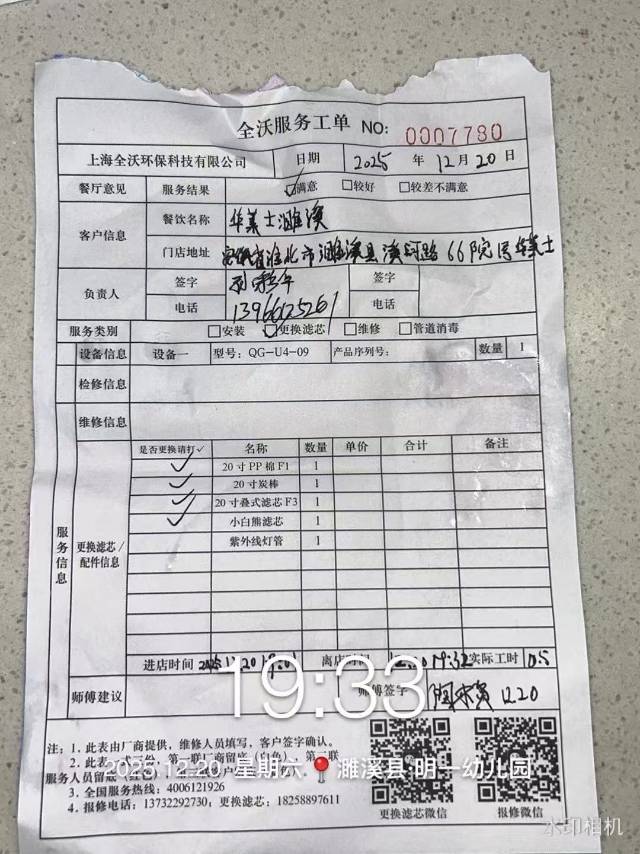 全沃服务工单 NO: 0007780
上海全沃环保科技有限公司 日期 2025 年 12 月 20 日
餐厅意见 服务结果 ☑满意 □较好 □较差不满意
客户信息 餐饮名称 华莱士濉溪
门店地址 安徽省淮北市濉溪县溪河路66院内华莱士
负责人 签字 签字
电话 电话
服务类别 □安装 ☑更换滤芯 □维修 □管道消毒
设备信息 设备一 型号: QG-U4-09 产品序列号: 数量 1
检修信息
维修信息
服务信息 更换滤芯/配件信息
是否更换请打✓ 名称 数量 单价 合计 备注
✓ 20寸PP棉F1 1
✓ 20寸炭棒 1
✓ 20寸叠式滤芯F3 1
✓ 小白熊滤芯 1
紫外线灯管 1
进店时间 2025.12.20 19:01 离店时间 19:32 实际工时 0.5
师傅建议 师傅签字 12.20
19:33
注: 1. 此表由厂商提供, 维修人员填写, 客户签字确认。
2. 此表
服务人员留底
2025.12.20 星期六 濉溪县·明一幼儿园
3. 全国服务热线: 4006121926
4. 报修电话: 13732292730; 更换滤芯: 18258897611
更换滤芯微信 报修微信
水印相机